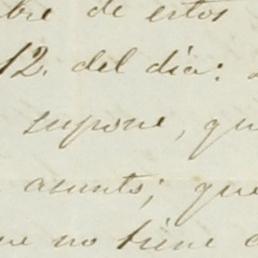 bre de estos
12. del dia:
supone, qu
asunto; que
ue no tiene